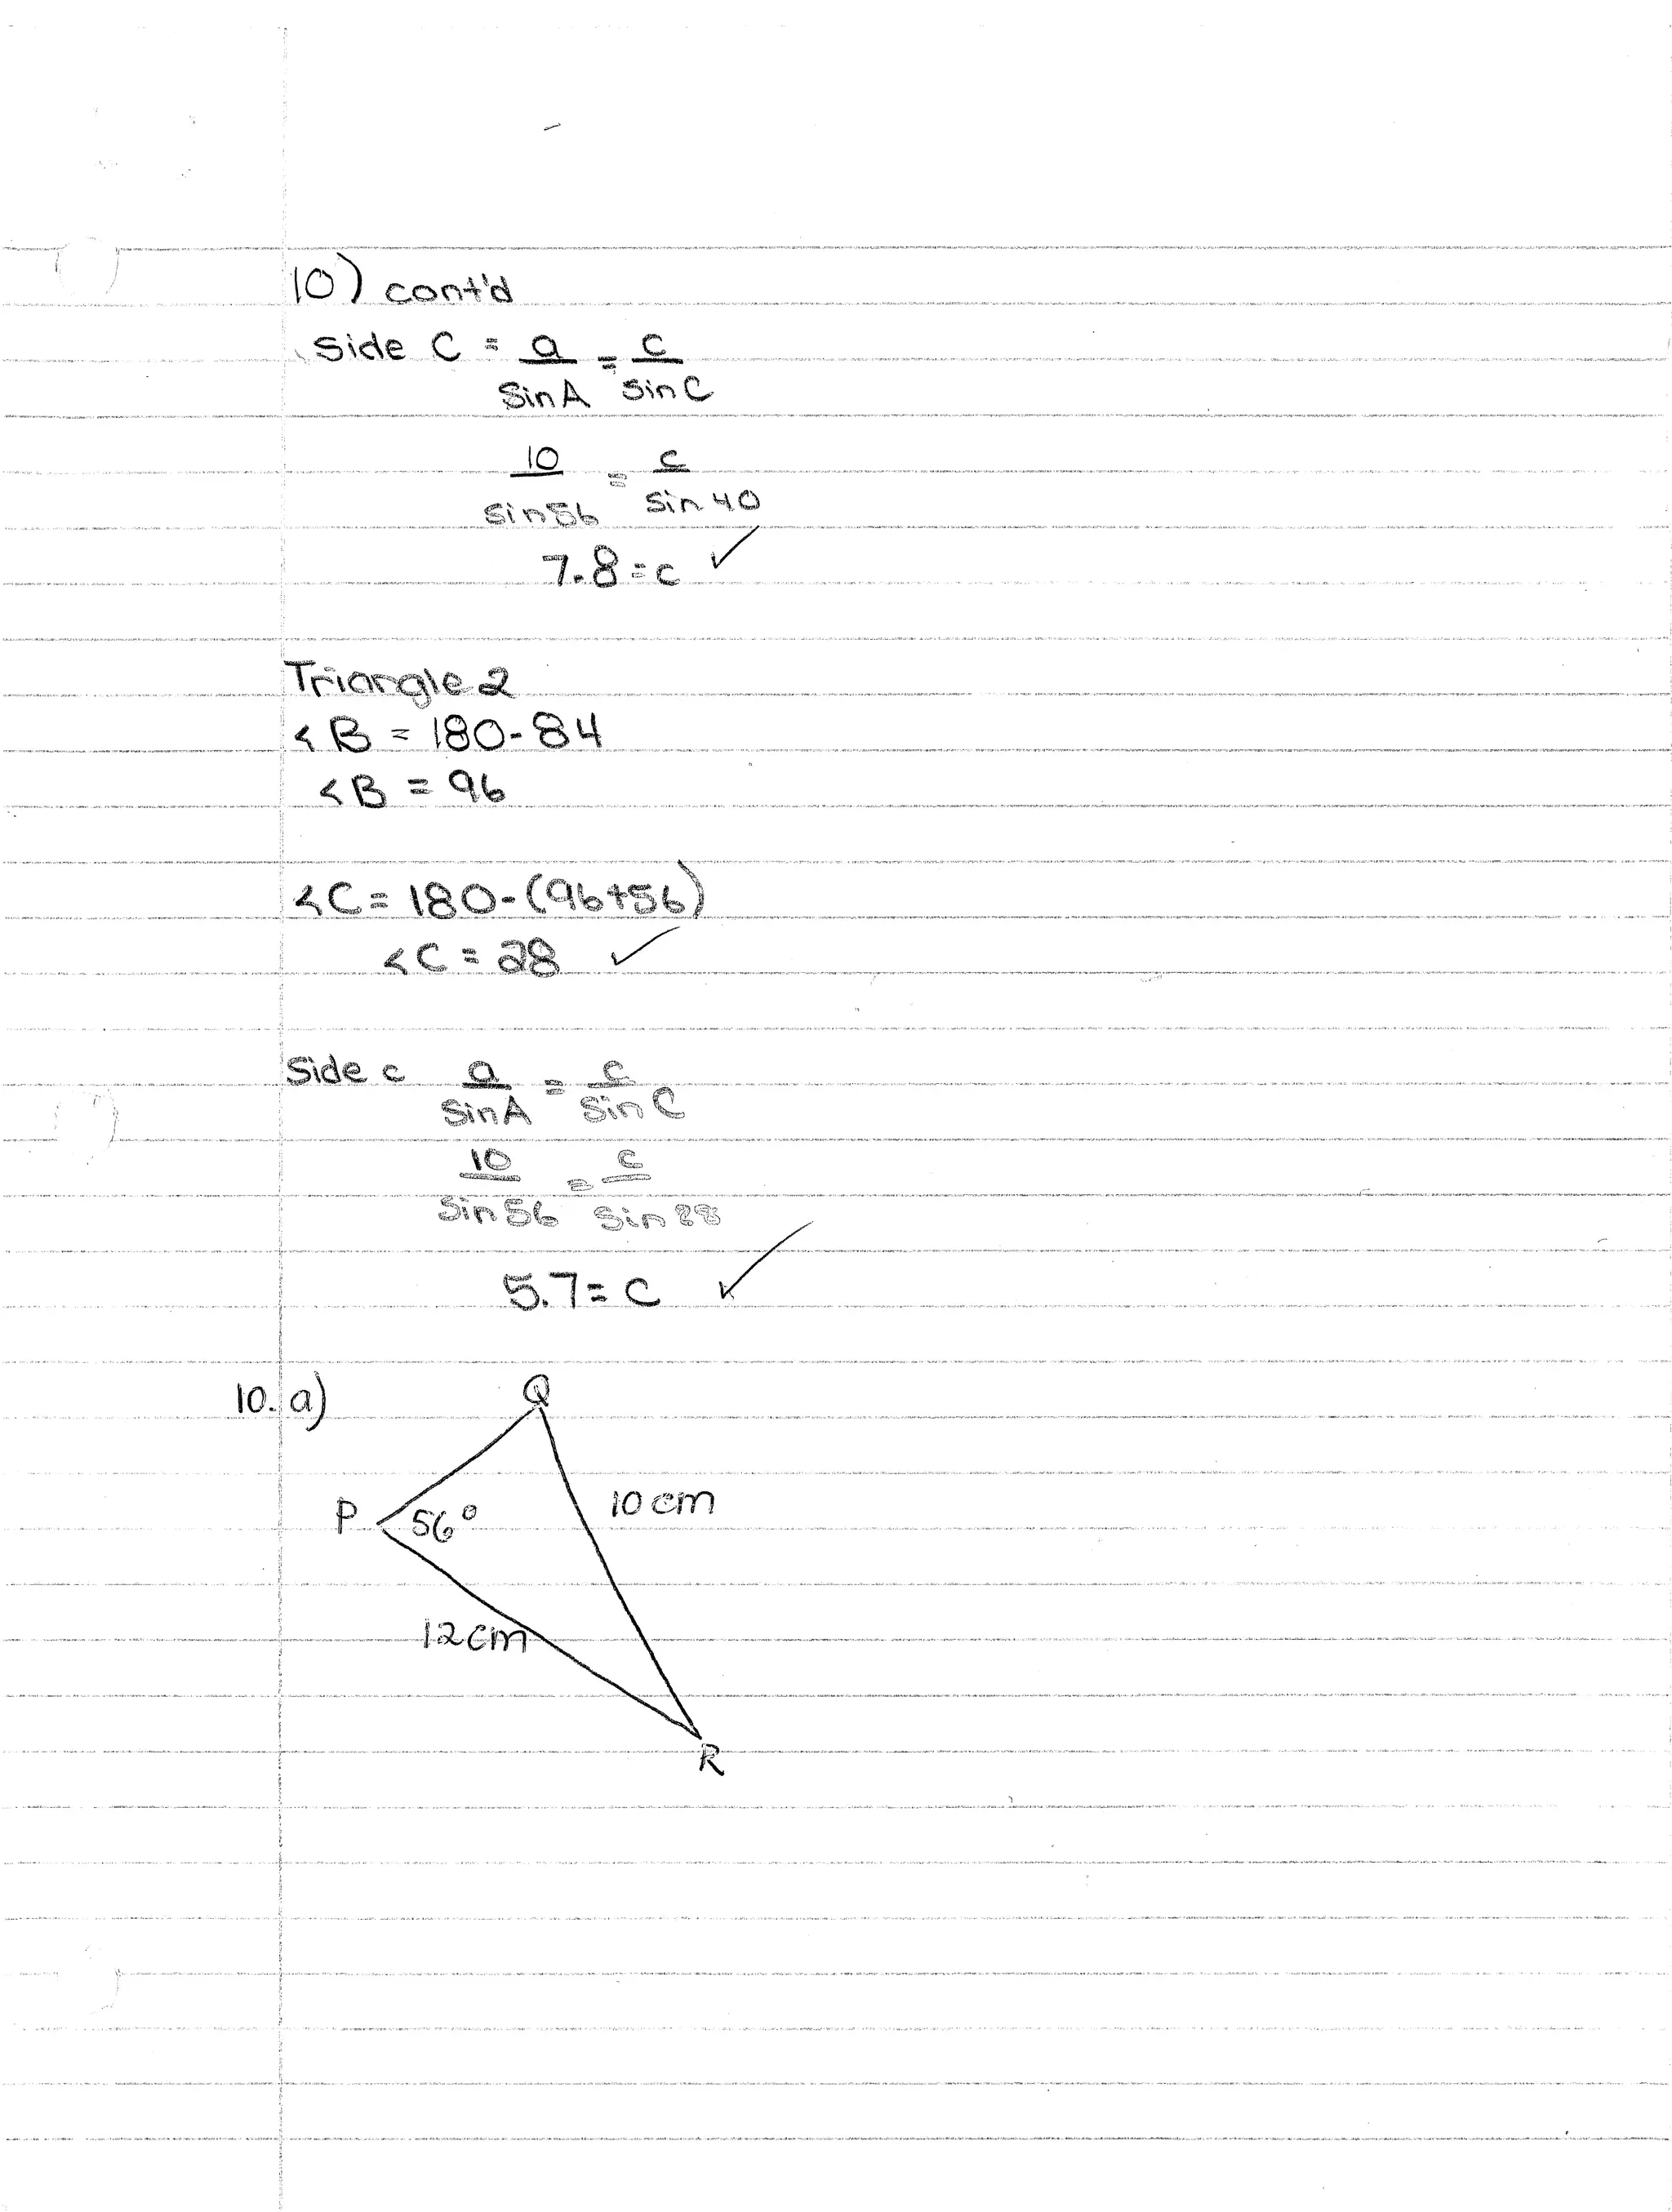 10) cont'd
Side C = a/SinA = c/sinC
10/sin56 = c/sin40
7.8 = c ✓
Triangle 2
∢B = 180-84
∢B = 96
∢C = 180-(96+56)
∢C = 28 ✓
Side c a/SinA = c/SinC
10/Sin56 = c/Sin28
5.7 = C ✓
10. a)
Q
P 56° 10 cm
12cm
R